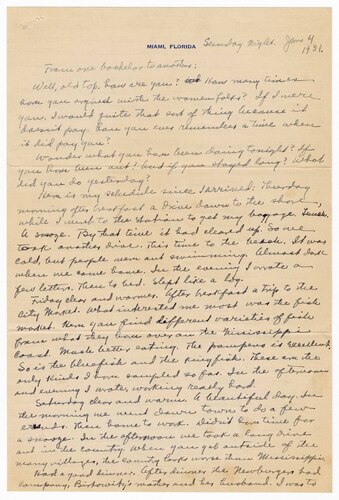 MIAMI, FLORIDA
Sunday Night. Jan 4
1931.
From one bachelor to another:
Well, old top, how are you? How many times
have you argued with the women folks? If I were
you, I would quit that sort of thing because it
doesn't pay. Can you ever remember a time when
it did pay you?
Wonder what you have been doing tonight? If
you have been out? And if you stayed long? What
did you do yesterday?
Here is my schedule since I arrived: Thursday
morning after breakfast a drive down to the shore,
while I went to the station to get my baggage. Lunch.
A snooze. By that time it had cleared up. So we
took another drive. This time to the beach. It was
cold, but people were out swimming. Almost dark
when we came home. In the evening I wrote a
few letters. Then to bed. Slept like a log.
Friday clear and warmer. After breakfast a trip to the
City Market. What interested me most was the fish
market. Here you find different varieties of fish
from what they have over on the Mississippi
coast. Much better eating. The pampano is excellent.
So is the bluefish and the kingfish. These are the
only kinds I have sampled so far. In the afternoon
and evening I wrote, working really hard.
Saturday clear and warm. A beautiful day. In
the morning we went down town to do a few
errands. Then home to work. Didn't have time for
a snooze. In the afternoon we took a long drive
out in the country. When you get outside of the
many villages, the country looks worse than Mississippi.
Had a good dinner. After dinner the Newburgers had
company, mother and her husband. I was to